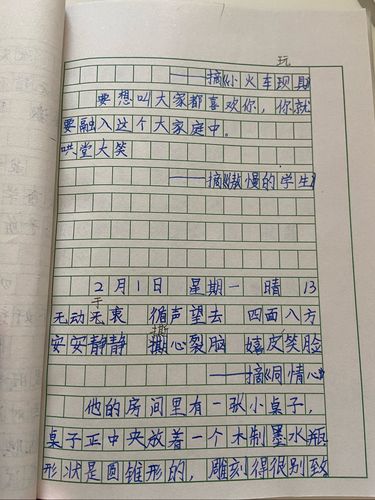 玩
——摘《小火车玩具》
要想叫大家都喜欢你，你就
要融入这个大家庭中。
哄堂大笑
——摘《傲慢的学生》
2月1日 星期一 晴 13
于
无动无衷 循声望去 四面八方
撕
安安静静 撕心裂脑 嬉皮笑脸
——摘《同情心》
他的房间里有一张小桌子，
桌子正中央放着一个木制墨水瓶
形状是圆锥形的，雕刻得很别致